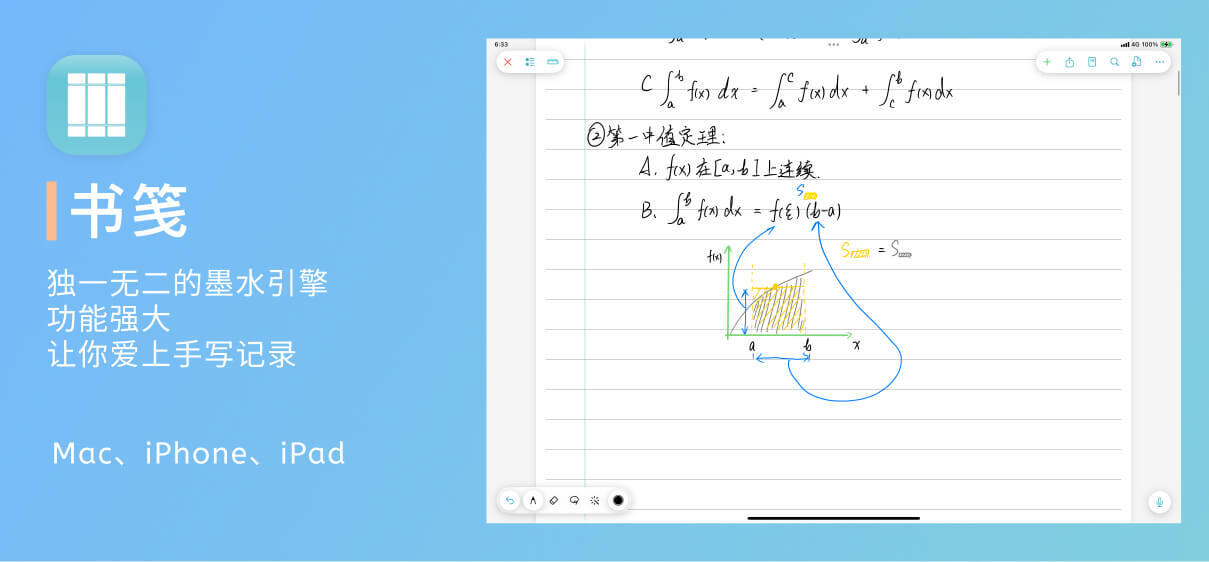 书笺
独一无二的墨水引擎
功能强大
让你爱上手写记录
Mac、iPhone、iPad
6:33
4G 100%
C ∫_a^b f(x) dx = ∫_a^c f(x) dx + ∫_c^b f(x) dx
②第一中值定理:
A. f(x)在[a,b]上连续.
S
B. ∫_a^b f(x) dx = f(ξ)(b-a)
S = S
f(x)
a b x